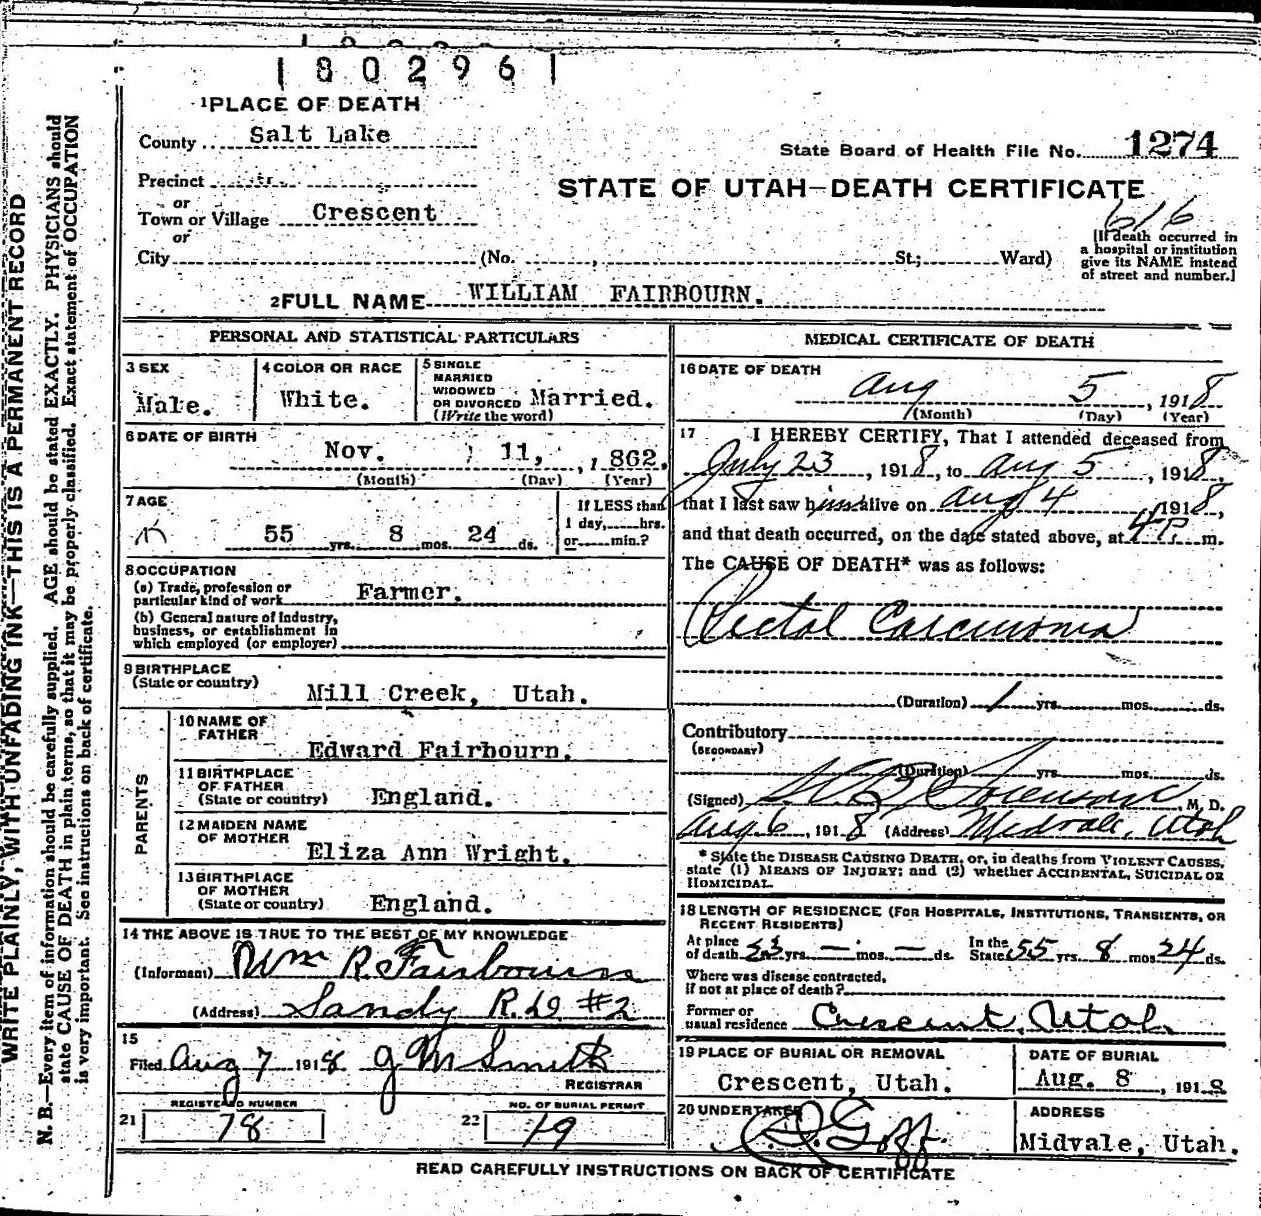 1802961
1 PLACE OF DEATH
County Salt Lake
State Board of Health File No. 1274
Precinct
STATE OF UTAH—DEATH CERTIFICATE
or
Town or Village Crescent
616
or
City (No. , St.; Ward)
[If death occurred in
a hospital or institution
give its NAME instead
of street and number.]
2 FULL NAME WILLIAM FAIRBOURN.
PERSONAL AND STATISTICAL PARTICULARS
3 SEX
Male.
4 COLOR OR RACE
White.
5 SINGLE
MARRIED
WIDOWED
OR DIVORCED Married.
(Write the word)
6 DATE OF BIRTH
Nov. 11, , 1862.
(Month) (Day) (Year)
7 AGE
55 yrs. 8 mos. 24 ds.
If LESS than
1 day, hrs.
or min.?
8 OCCUPATION
(a) Trade, profession or
particular kind of work Farmer.
(b) General nature of industry,
business, or establishment in
which employed (or employer)
9 BIRTHPLACE
(State or country)
Mill Creek, Utah.
PARENTS
10 NAME OF
FATHER
Edward Fairbourn.
11 BIRTHPLACE
OF FATHER
(State or country) England.
12 MAIDEN NAME
OF MOTHER
Eliza Ann Wright.
13 BIRTHPLACE
OF MOTHER
(State or country) England.
14 THE ABOVE IS TRUE TO THE BEST OF MY KNOWLEDGE
(Informant) Wm R. Fairbourn
(Address) Sandy R.D. #2
15
Filed Aug 7 1918 J M Smith
REGISTRAR
REGISTERED NUMBER
21 78
NO. OF BURIAL PERMIT
22 19
MEDICAL CERTIFICATE OF DEATH
16 DATE OF DEATH
Aug 5 , 1918
(Month) (Day) (Year)
17 I HEREBY CERTIFY, That I attended deceased from
July 23 , 1918, to Aug 5 , 1918,
that I last saw him alive on Aug 4 1918,
and that death occurred, on the date stated above, at 4 P. m.
The CAUSE OF DEATH* was as follows:
Rectal Carcinoma
(Duration) 1 yrs. mos. ds.
Contributory
(SECONDARY)
(Duration) yrs. mos. ds.
(Signed) , M. D.
Aug 6 , 1918 (Address) Midvale, Utah
* State the DISEASE CAUSING DEATH, or, in deaths from VIOLENT CAUSES,
state (1) MEANS OF INJURY; and (2) whether ACCIDENTAL, SUICIDAL OR
HOMICIDAL.
18 LENGTH OF RESIDENCE (FOR HOSPITALS, INSTITUTIONS, TRANSIENTS, OR
RECENT RESIDENTS)
At place
of death yrs. — mos. — ds.
In the
State 55 yrs. 8 mos 24 ds.
Where was disease contracted,
if not at place of death?
Former or
usual residence Crescent, Utah
19 PLACE OF BURIAL OR REMOVAL
Crescent, Utah.
DATE OF BURIAL
Aug. 8 , 1918
20 UNDERTAKER
Goff.
ADDRESS
Midvale, Utah.
READ CAREFULLY INSTRUCTIONS ON BACK OF CERTIFICATE
WRITE PLAINLY, WITH UNFADING INK—THIS IS A PERMANENT RECORD
N. B.—Every item of information should be carefully supplied. AGE should be stated EXACTLY. PHYSICIANS should
state CAUSE OF DEATH in plain terms, so that it may be properly classified. Exact statement of OCCUPATION
is very important. See instructions on back of certificate.